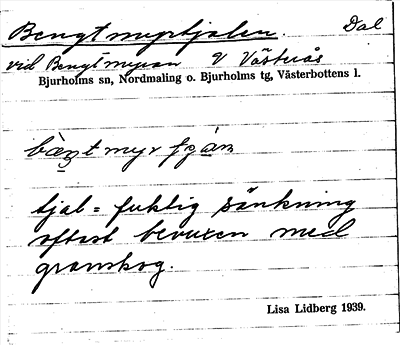 Bengtmyrtjalen. Dal
vid Bengtmyran V Västerås
Bjurholms sn, Nordmaling o. Bjurholms tg, Västerbottens l.
tjal = fuktig sänkning
oftast bevuxen med
granskog.
Lisa Lidberg 1939.